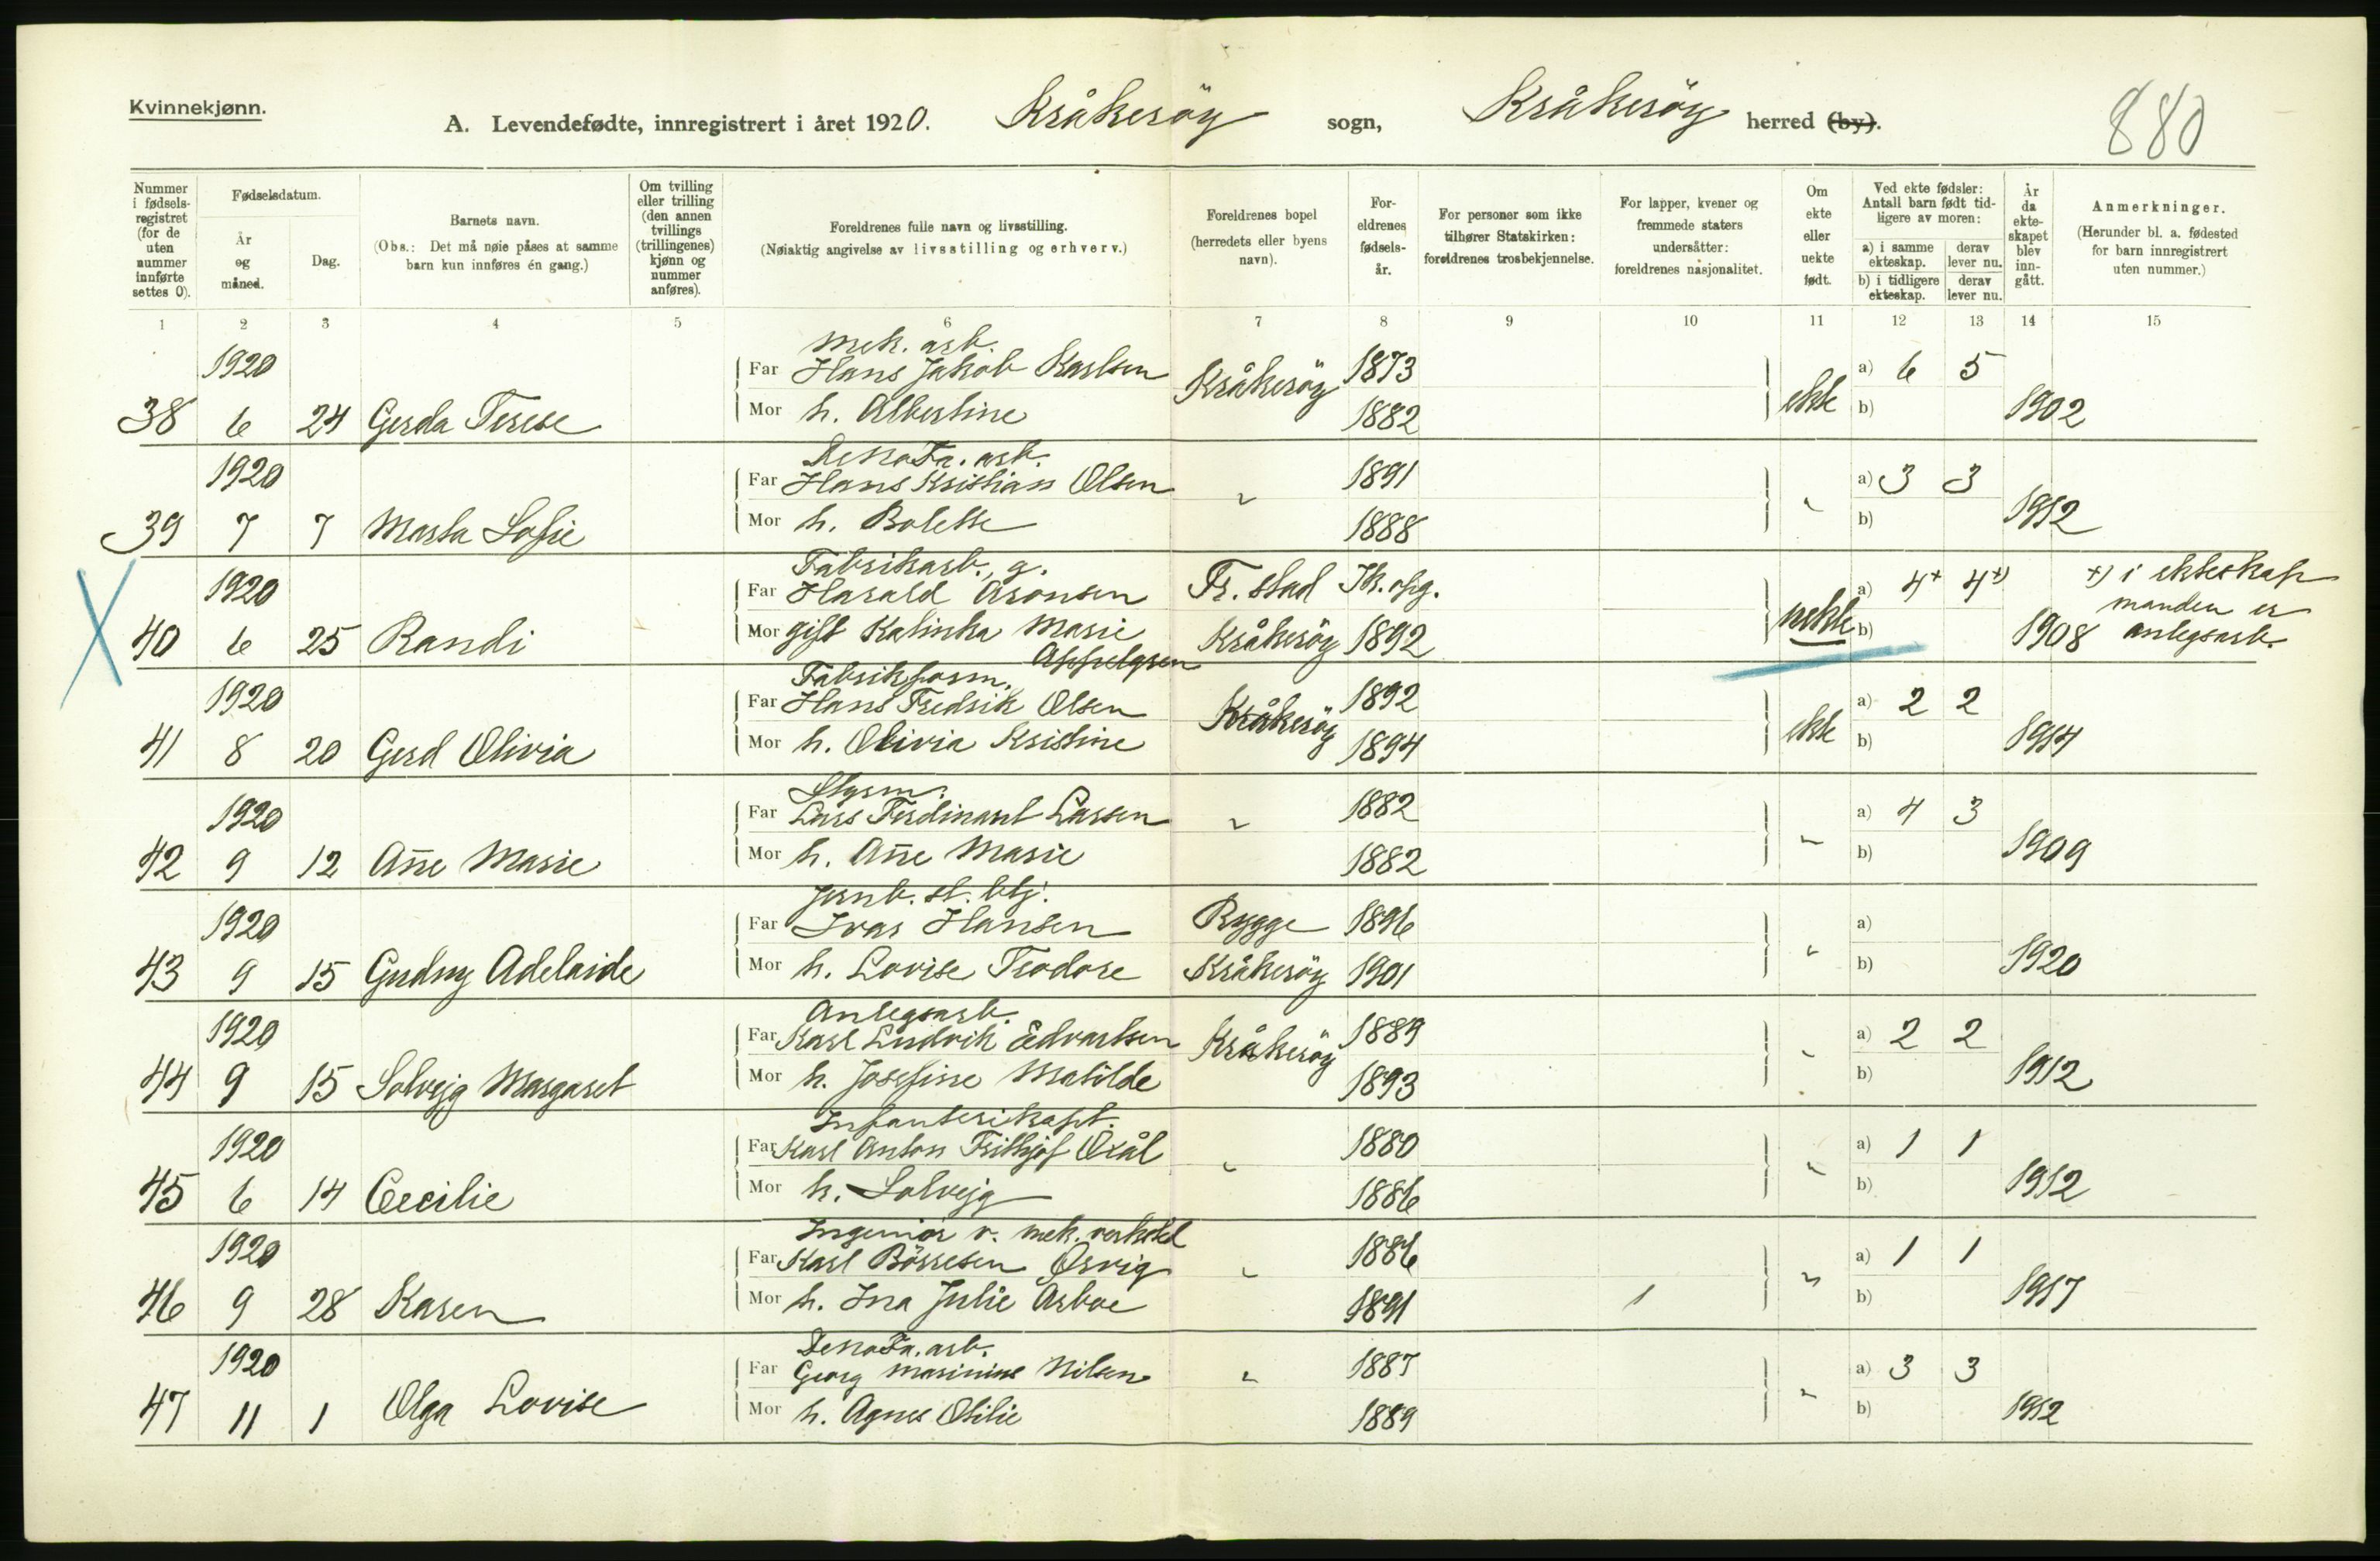 Kvinnekjønn.
A. Levendefødte, innregistrert i året 1920. Kråkerøy sogn, Kråkerøy herred (by).
880
Nummer i fødselsregistret (for de uten nummer innførte settes 0).
Fødselsdatum.
År og måned.
Dag.
Barnets navn.
(Obs.: Det må nøie påses at samme barn kun innføres én gang.)
Om tvilling eller trilling (den annen tvillings (trillingenes) kjønn og nummer anføres).
Foreldrenes fulle navn og livsstilling.
(Nøiaktig angivelse av livsstilling og erhverv.)
Foreldrenes bopel (herredets eller byens navn).
Foreldrenes fødselsår.
For personer som ikke tilhører Statskirken: foreldrenes trosbekjennelse.
For lapper, kvener og fremmede staters undersåtter: foreldrenes nasjonalitet.
Om ekte eller uekte født.
Ved ekte fødsler: Antall barn født tidligere av moren:
a) i samme ekteskap. derav lever nu.
b) i tidligere ekteskap. derav lever nu.
År da ekteskapet blev inngått.
Anmerkninger.
(Herunder bl. a. fødested for barn innregistrert uten nummer.)
1 2 3 4 5 6 7 8 9 10 11 12 13 14 15
Mek. arb.
1920 Far Hans Jakob Karlsen Kråkerøy 1873 a) 6 5
38 6 24 Gerda Terese Mor h. Albertine 1882 ekte b) 1902
1920 Far Hans Kristian Olsen " 1891 a) 3 3
39 7 7 Marta Sofie Mor h. Bolette 1888 " b) 1912
Fabrikarb., g.
1920 Far Harald Aronsen Fr. stad Ik. opg. a) 4+ 4+) +) i ekteskap
40 6 25 Randi Mor gift Kalinka Marie Kråkerøy 1892 uekte b) 1908 manden er anlegsarb.
Fabrikform.
1920 Far Hans Fredrik Olsen Kråkerøy 1892 a) 2 2
41 8 20 Gerd Olivia Mor h. Olivia Kristine 1894 ekte b) 1914
Styrm.
1920 Far Lars Ferdinant Larsen " 1882 a) 4 3
42 9 12 Anne Marie Mor h. Anne Marie 1882 " b) 1909
Jernb. st. btj.
1920 Far Ivar Hansen Rygge 1896 a)
43 9 15 Gudny Adelaide Mor h. Lovise Teodore Kråkerøy 1901 " b) 1920
Anlegsarb.
1920 Far Karl Ludvik Edvartsen Kråkerøy 1889 a) 2 2
44 9 15 Solvejg Margaret Mor h. Josefine Matilde 1893 " b) 1912
Infanterikapt.
1920 Far Karl Anton Frithjof Oxål " 1880 a) 1 1
45 6 14 Cecilie Mor h. Solvejg 1886 " b) 1912
Ingeniør v. mek. verksted
1920 Far Karl BörresenÖrvig " 1886 a) 1 1
46 9 28 Karen Mor h. Ina Julie Arboe 1891 1 " b) 1917
1920 Far Georg Marinius Nilsen " 1887 a) 3 3
47 11 1 Olga Lovise Mor h. Agnes Otilie 1889 " b) 1912